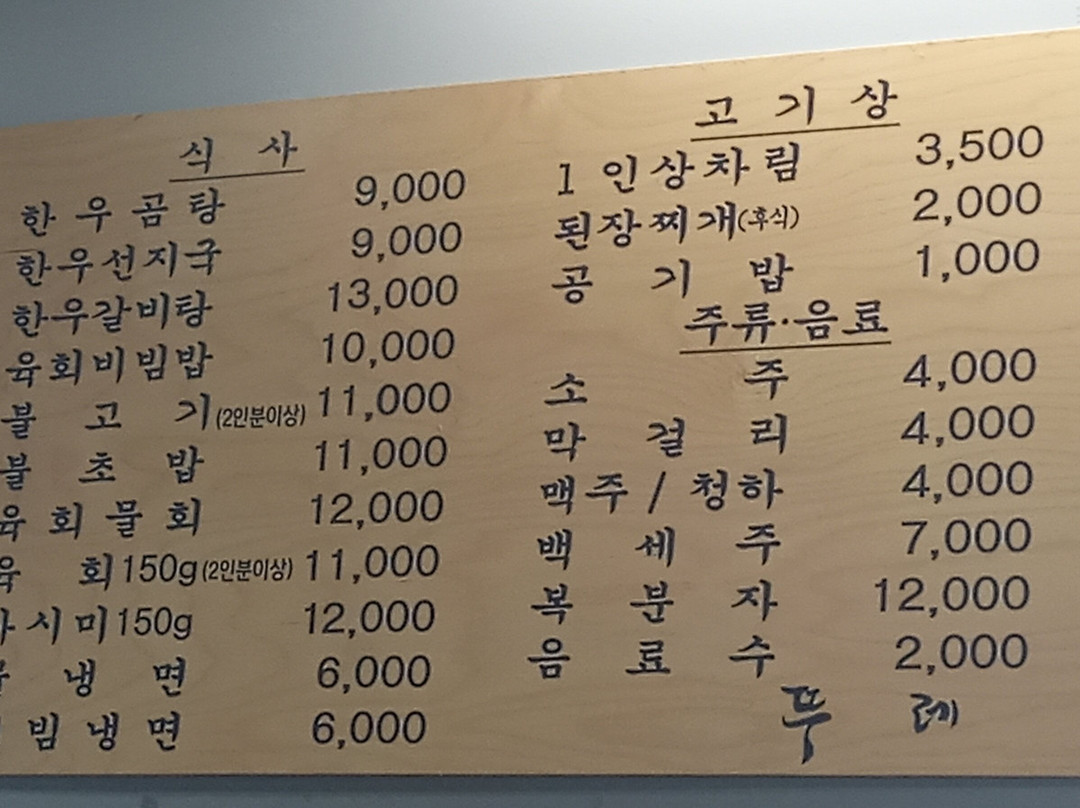 식 사
한우곰탕 9,000
한우선지국 9,000
한우갈비탕 13,000
육회비빔밥 10,000
불고기(2인분이상) 11,000
불초밥 11,000
육회물회 12,000
육회150g(2인분이상) 11,000
시미150g 12,000
냉면 6,000
빔냉면 6,000
고 기 상
1인상차림 3,500
된장찌개(후식) 2,000
공기밥 1,000
주류·음료
소주 4,000
막걸리 4,000
맥주/청하 4,000
백세주 7,000
복분자 12,000
음료수 2,000
뚜레